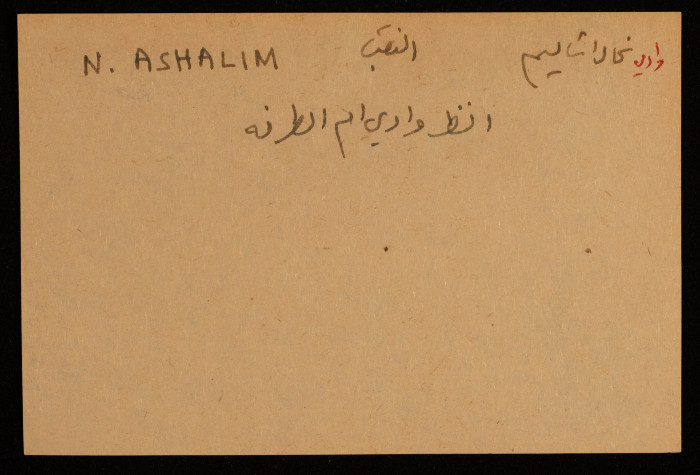 وادي نحال اشاليم النقب N. ASHALIM
انظر وادي ام الطرفه